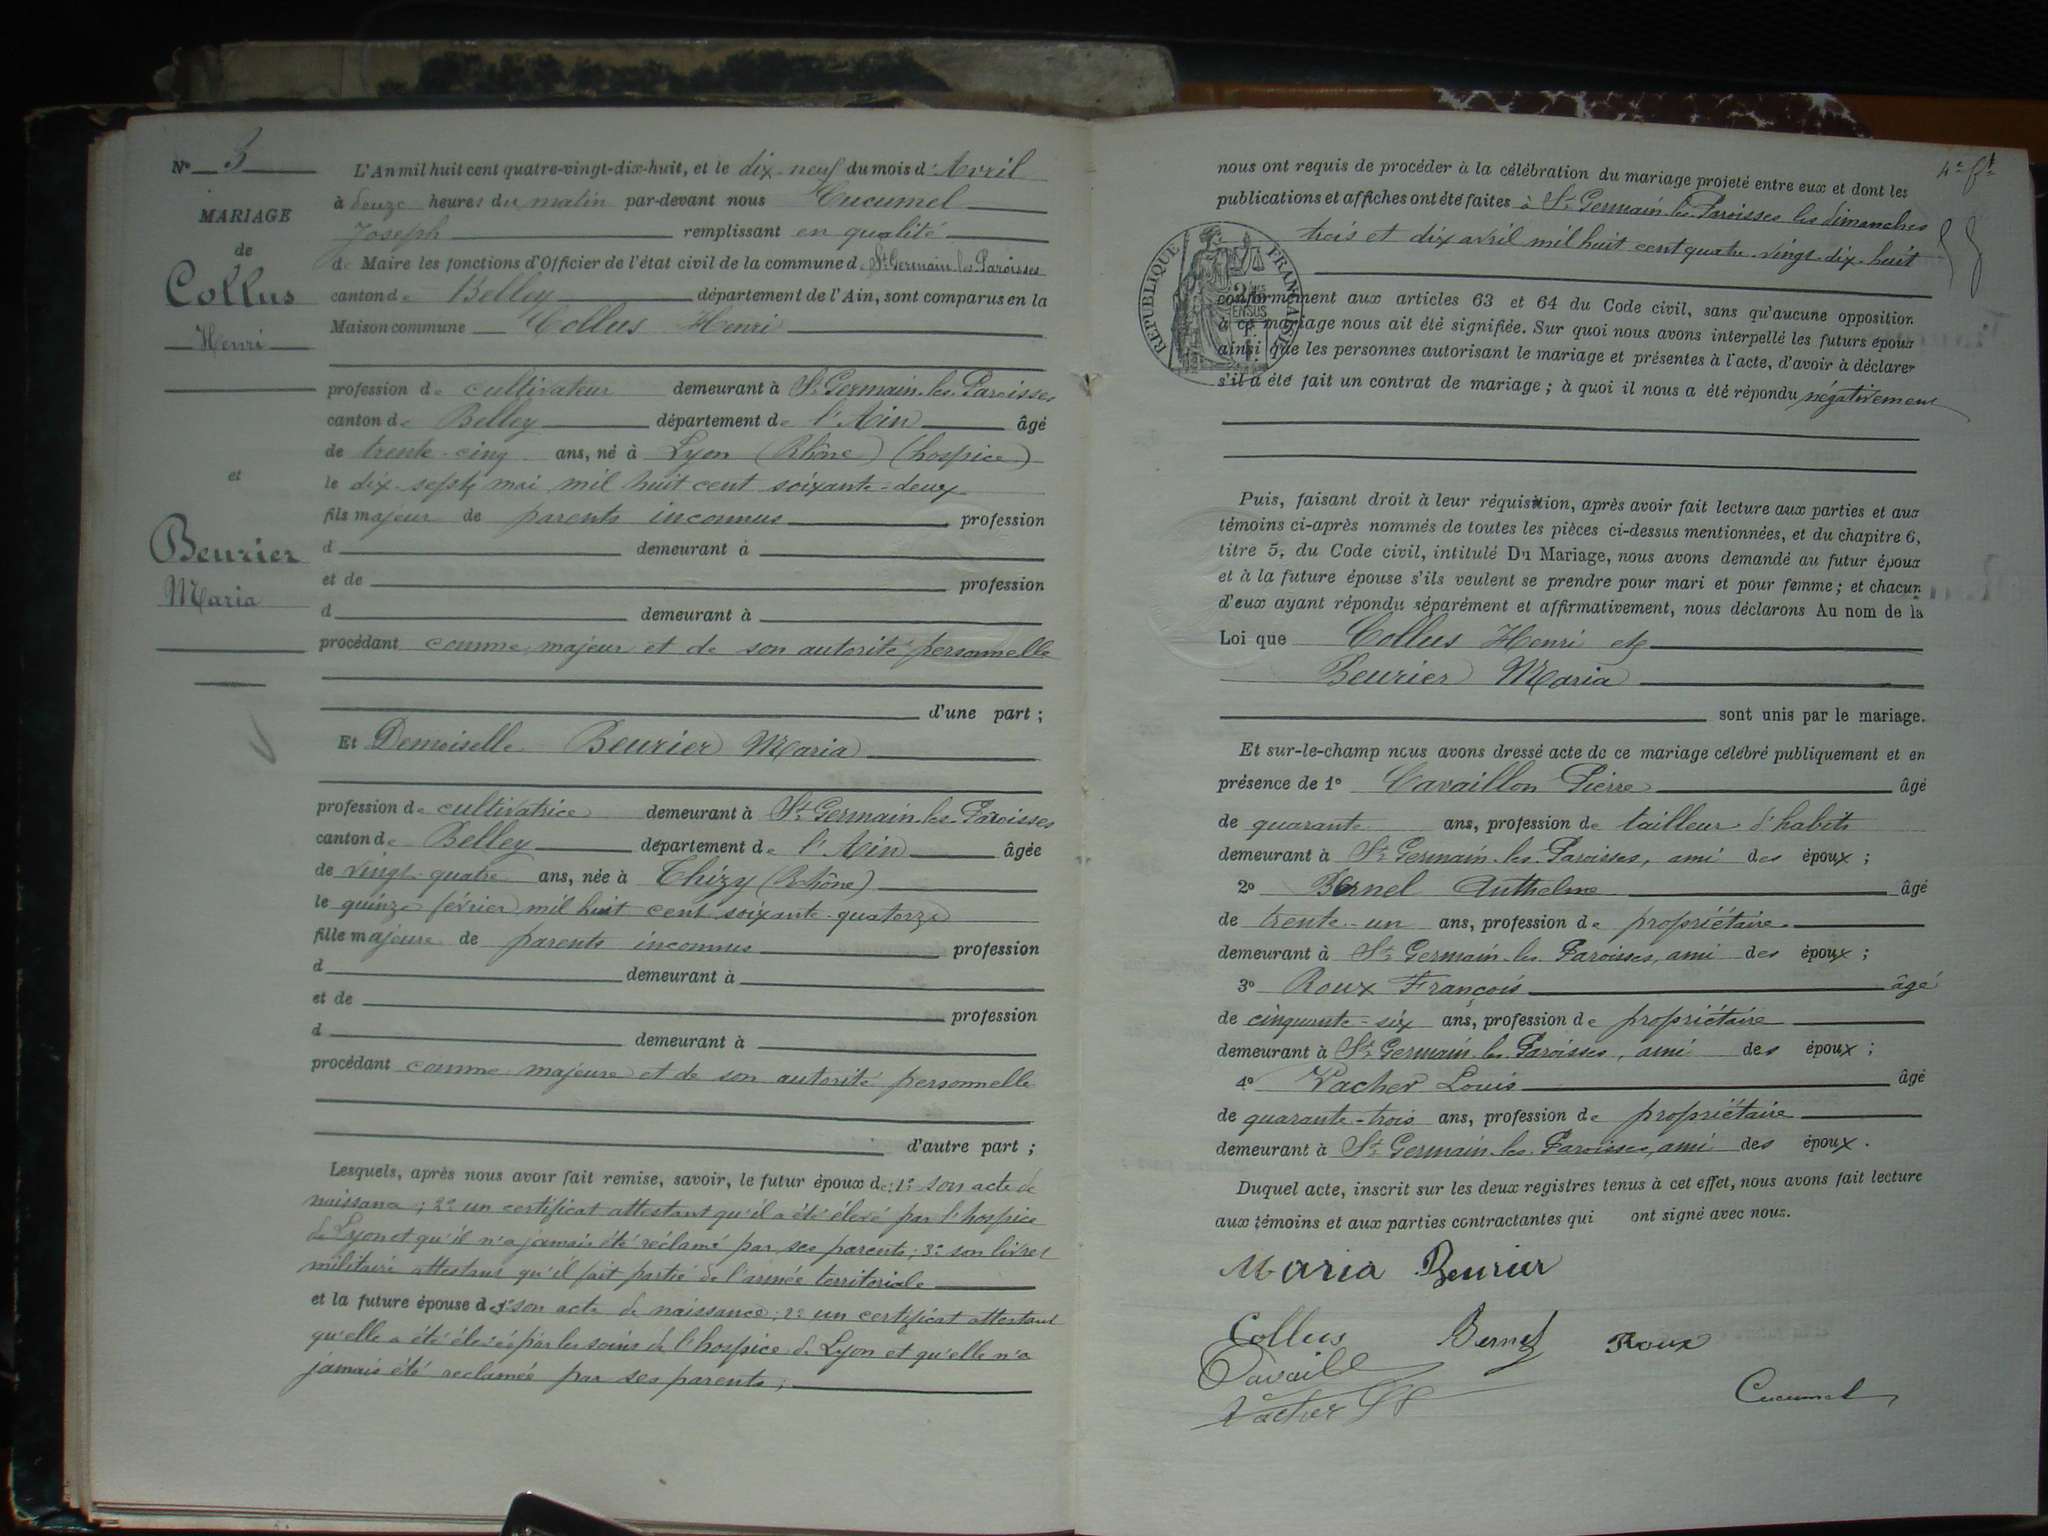 N° 3
MARIAGE
de
Collus
Henri
et
Beurier
Maria
L'An mil huit cent quatre-vingt-dix-huit, et le dix-neuf du mois d'Avril
à deuze heures du matin par-devant nous Cucumel
Joseph remplissant en qualité
de Maire les fonctions d'Officier de l'état civil de la commune de St Germain les Paroisses
canton de Belley département de l'Ain, sont comparus en la
Maison commune Collus Henri
profession de cultivateur demeurant à St Germain-les-Paroisses
canton de Belley département de l'Ain âgé
de trente-cinq ans, né à Lyon (Rhône) (hospice)
le dix-sept mai mil huit cent soixante-deux
fils majeur de parents inconnus profession
d demeurant à
et de profession
d demeurant à
procédant comme majeur et de son autorité personnelle
d'une part ;
Et Demoiselle Beurier Maria
profession de cultivatrice demeurant à St Germain-les-Paroisses
canton de Belley département de l'Ain âgée
de vingt-quatre ans, née à Thizy (Rhône)
le quinze février mil huit cent soixante-quatorze
fille majeure de parents inconnus profession
d demeurant à
et de profession
d demeurant à
procédant comme majeure et de son autorité personnelle
d'autre part ;
Lesquels, après nous avoir fait remise, savoir, le futur époux de: 1° son acte de
naissance ; 2° un certificat attestant qu'il a été élevé par l'hospice
de Lyon et qu'il n'a jamais été réclamé par ses parents ; 3° son livret
militaire attestant qu'il fait partie de l'armée territoriale
et la future épouse de 1° son acte de naissance ; 2° un certificat attestant
qu'elle a été élevée par les soins de l'hospice de Lyon et qu'elle n'a
jamais été reclamée par ses parents ;
nous ont requis de procéder à la célébration du mariage projeté entre eux et dont les
publications et affiches ont été faites à St Germain-les-Paroisses les dimanches
trois et dix avril mil huit cent quatre-vingt-dix-huit
RÉPUBLIQUE FRANÇAISE
conformément aux articles 63 et 64 du Code civil, sans qu'aucune opposition
à ce mariage nous ait été signifiée. Sur quoi nous avons interpellé les futurs époux
ainsi que les personnes autorisant le mariage et présentes à l'acte, d'avoir à déclarer
s'il a été fait un contrat de mariage ; à quoi il nous a été répondu négativement
Puis, faisant droit à leur réquisition, après avoir fait lecture aux parties et aux
témoins ci-après nommés de toutes les pièces ci-dessus mentionnées, et du chapitre 6,
titre 5, du Code civil, intitulé Du Mariage, nous avons demandé au futur époux
et à la future épouse s'ils veulent se prendre pour mari et pour femme ; et chacun
d'eux ayant répondu séparément et affirmativement, nous déclarons Au nom de la
Loi que Collus Henri et
Beurier Maria
sont unis par le mariage.
Et sur-le-champ nous avons dressé acte de ce mariage célébré publiquement et en
présence de 1° Cavaillon Pierre âgé
de quarante ans, profession de tailleur d'habits
demeurant à St Germain-les-Paroisses, ami des époux ;
2° Bernel Anthelme âgé
de trente-un ans, profession de propriétaire
demeurant à St Germain-les-Paroisses, ami des époux ;
3° Roux François âgé
de cinquante-six ans, profession de propriétaire
demeurant à St Germain-les-Paroisses, ami des époux ;
4° Vacher Louis âgé
de quarante-trois ans, profession de propriétaire
demeurant à St Germain-les-Paroisses, ami des époux.
Duquel acte, inscrit sur les deux registres tenus à cet effet, nous avons fait lecture
aux témoins et aux parties contractantes qui ont signé avec nous.
Maria Beurier
Collus Bernel Roux
Vacher
Cucumel